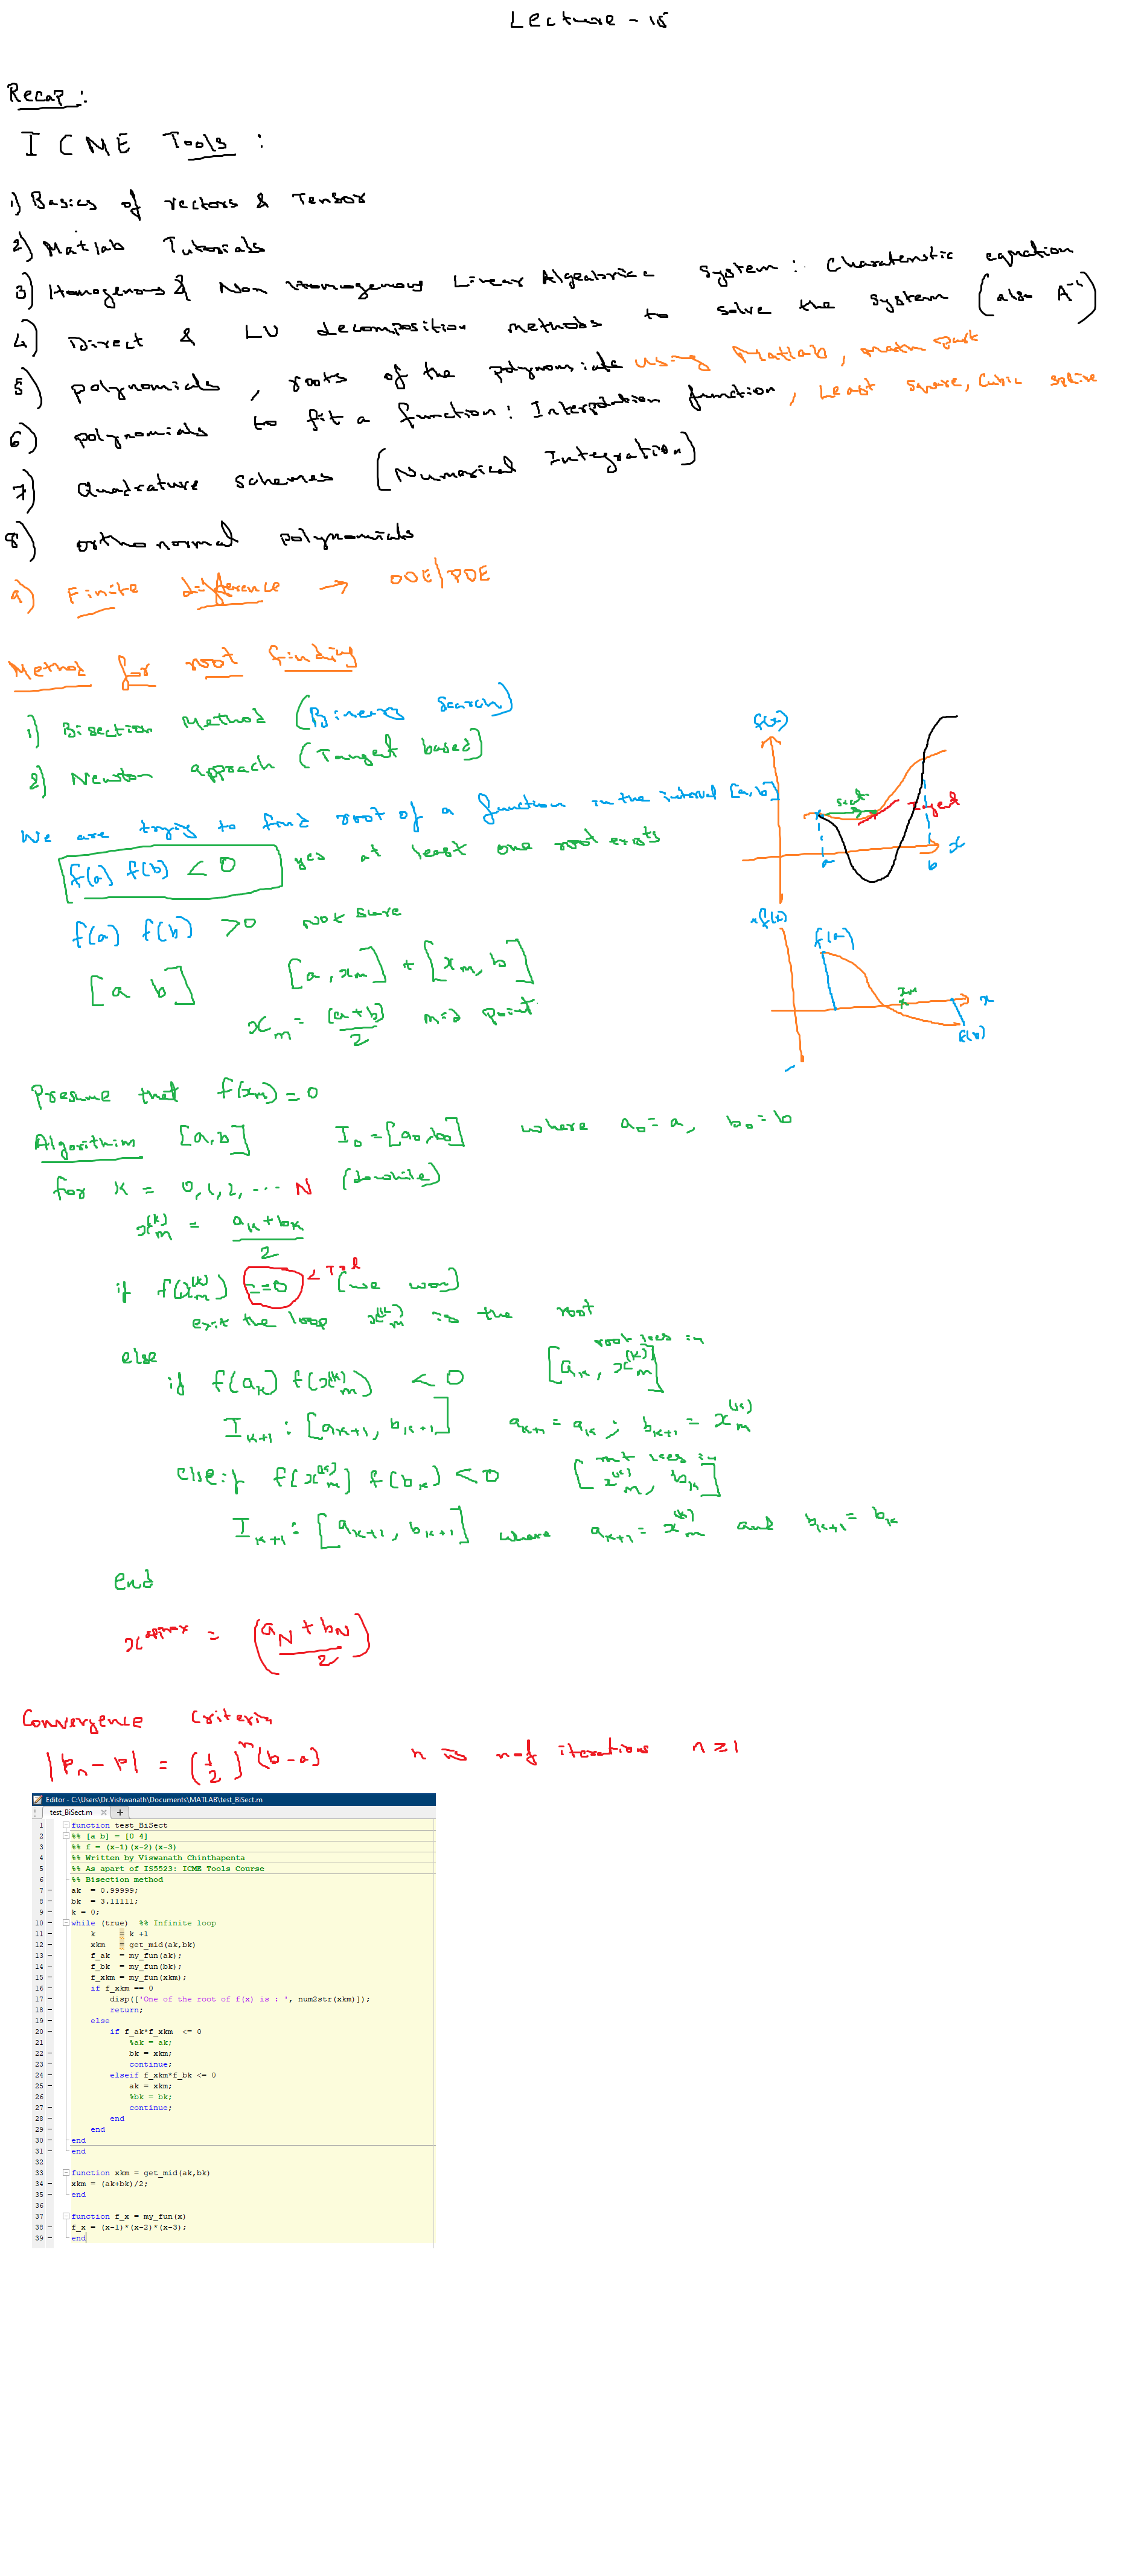 Lecture - 15
Recap :
ICME Tools :
1) Basics of vectors & Tensor
2) Matlab Tutorials
3) Homogenous & Non Homogenous Linear Algeabric system : charateristic equation
4) Direct & LU decomposition methods to solve the system (also A⁻¹)
5) polynomials, roots of the polynomials using Matlab, math part
6) polynomials to fit a function : Interpolation function, Least square, Cubic spline
7) Quadrature schemes (Numerical Integration)
8) orthonormal polynomials
9) Finite difference → ODE/PDE
Method for root finding
1) Bisection Method (Binary search)
2) Newton approach (Tangent based)
We are trying to find root of a function in the interval [a, b]
f(a) f(b) < 0 yes at least one root exists
f(a) f(b) > 0 Not sure
[a b] [a, xm] + [xm, b]
xm = (a+b)/2 mid point
f(x)
Tangent
a
b
x
f(x)
f(a)
xm
x
f(b)
Presume that f(xm) = 0
Algorithim [a, b] I0 = [a0, b0] where a0 = a, b0 = b
for k = 0, 1, 2, ... N (dowhile)
xm^(k) = (ak + bk)/2
if f(xm^(k)) == 0 < Tol (we won)
exit the loop xm^(k) is the root
else
root lies in
if f(ak) f(xm^(k)) < 0 [ak, xm^(k)]
Ik+1 : [ak+1, bk+1] ak+1 = ak ; bk+1 = xm^(k)
root lies in
elseif f(xm^(k)) f(bk) < 0 [xm^(k), bk]
Ik+1 : [ak+1, bk+1] where ak+1 = xm^(k) and bk+1 = bk
end
x = (aN + bN)/2
Convergence Criteria
|Pn - P| = (1/2)^n (b-a) n is no of iterations n ≥ 1
Editor - C:\Users\Dr.Vishwanath\Documents\MATLAB\test_BiSect.m
test_BiSect.m × +
1 function test_BiSect
2 %% [a b] = [0 4]
3 %% f = (x-1)(x-2)(x-3)
4 %% Written by Viswanath Chinthapenta
5 %% As apart of IS5523: ICME Tools Course
6 %% Bisection method
7 ak = 0.99999;
8 bk = 3.11111;
9 k = 0;
10 while (true) %% Infinite loop
11 k = k +1
12 xkm = get_mid(ak,bk)
13 f_ak = my_fun(ak);
14 f_bk = my_fun(bk);
15 f_xkm = my_fun(xkm);
16 if f_xkm == 0
17 disp(['One of the root of f(x) is : ', num2str(xkm)]);
18 return;
19 else
20 if f_ak*f_xkm <= 0
21 %ak = ak;
22 bk = xkm;
23 continue;
24 elseif f_xkm*f_bk <= 0
25 ak = xkm;
26 %bk = bk;
27 continue;
28 end
29 end
30 end
31 end
32
33 function xkm = get_mid(ak,bk)
34 xkm = (ak+bk)/2;
35 end
36
37 function f_x = my_fun(x)
38 f_x = (x-1)*(x-2)*(x-3);
39 end